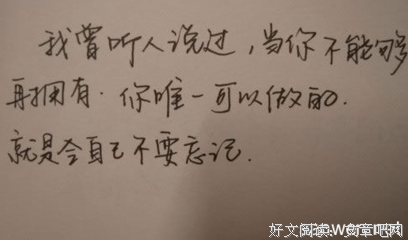 我曾听人说过,当你不能够
再拥有.你唯一可以做的.
就是令自己不要忘记.
好文阅读:文章吧网